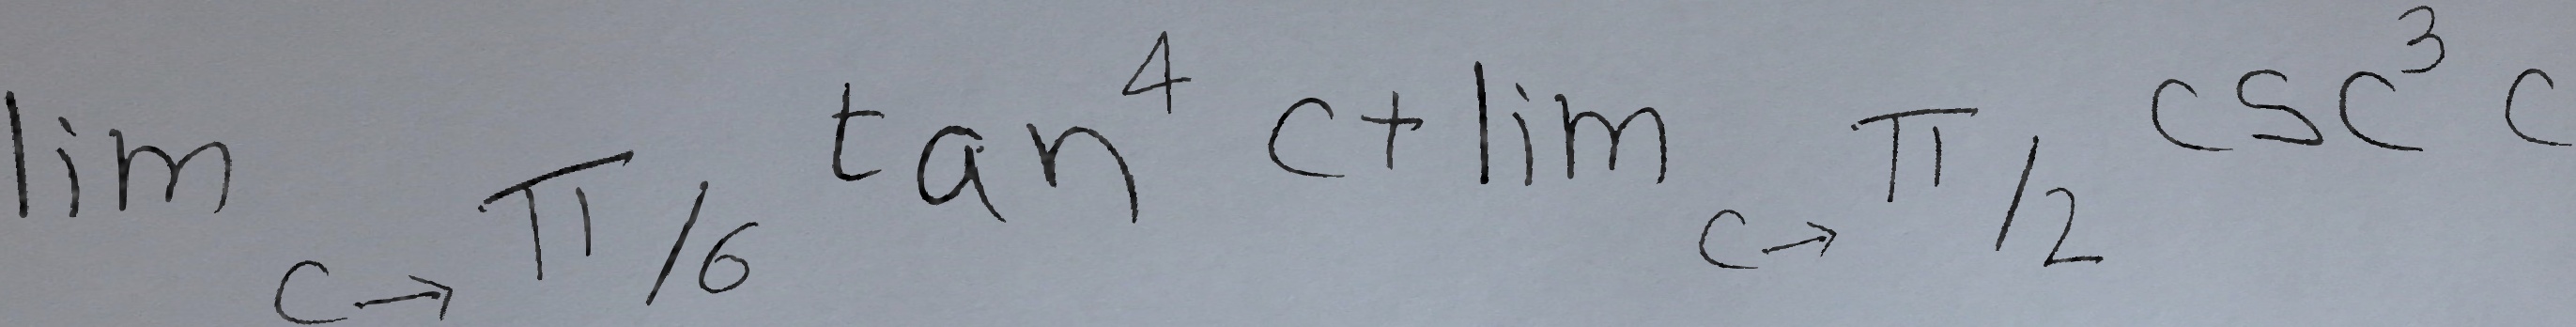 lim c→π/6 tan⁴ c + lim c→π/2 csc³ c